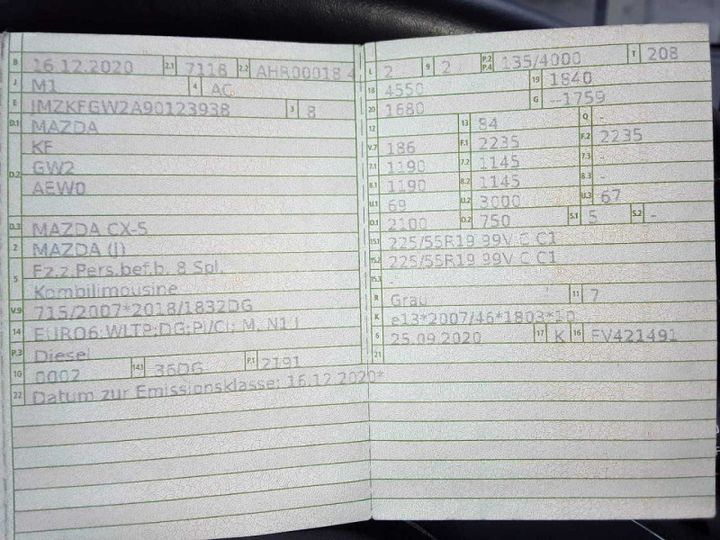 B 16.12.2020 2.1 7118 2.2 AHR00018 4
J M1 4 AC
E JMZKFGW2A90123938 3 8
D.1 MAZDA
D.2 KF
GW2
AEW0
D.3 MAZDA CX-5
2 MAZDA (J)
5 Fz.z.Pers.bef.b. 8 Spl.
Kombilimousine
V.9 715/2007*2018/1832DG
14 EURO6;WLTP;DG;PI/CI; M, N1 I
P.3 Diesel
10 0002 14.1 36DG P.1 2191
22 Datum zur Emissionsklasse: 16.12.2020*
L 2 9 2 P.2 P.4 135/4000 T 208
18 4550 19 1840
20 1680 G --1759
12 13 84 Q -
V.7 186 F.1 2235 F.2 2235
7.1 1190 7.2 1145 7.3 -
8.1 1190 8.2 1145 8.3 -
U.1 69 U.2 3000 U.3 67
O.1 2100 O.2 750 S.1 5 S.2 -
15.1 225/55R19 99V C C1
15.2 225/55R19 99V C C1
15.3 -
R Grau 11 7
K e13*2007/46*1803*10
6 25.09.2020 17 K 16 FV421491
21